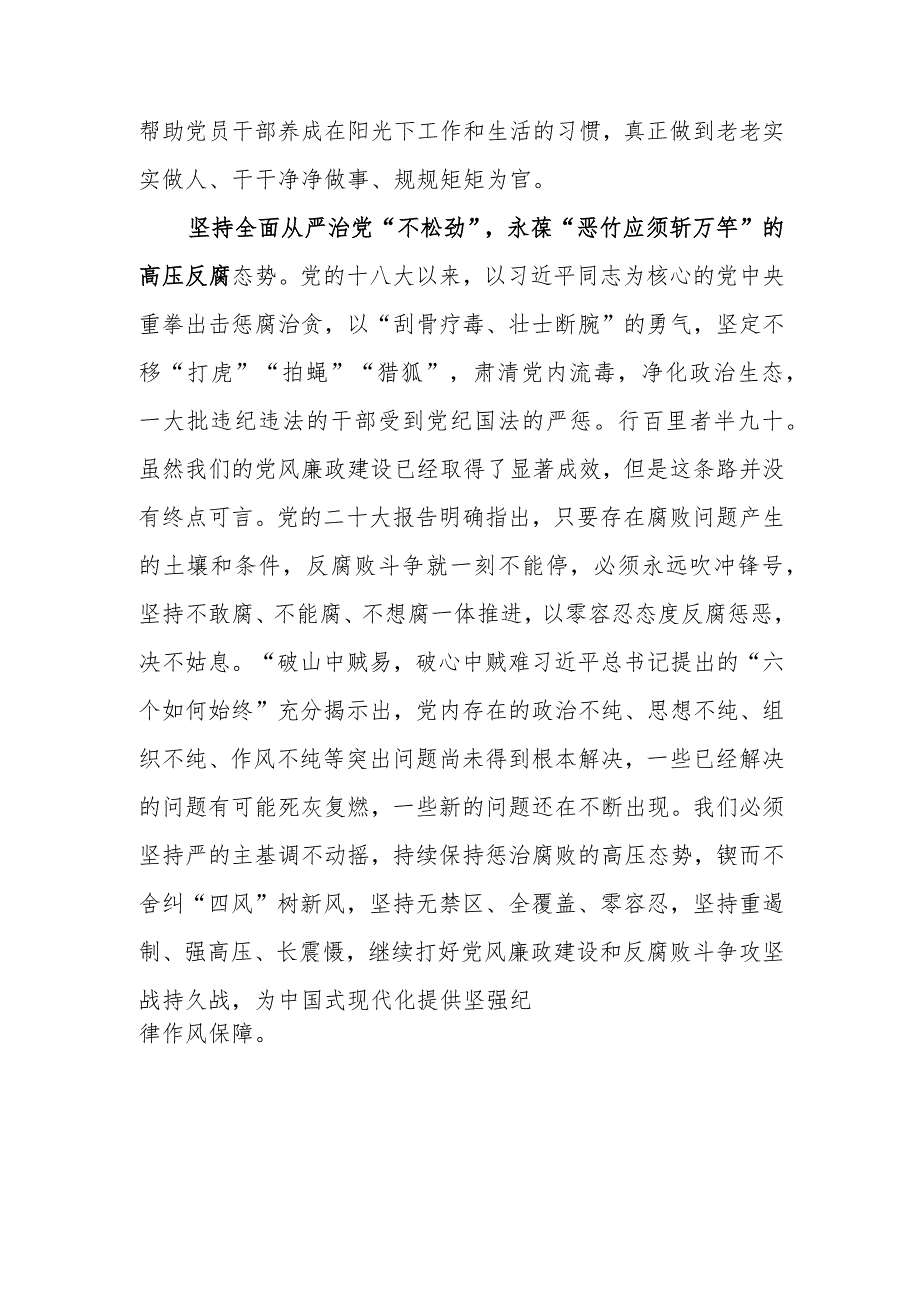 帮助党员干部养成在阳光下工作和生活的习惯，真正做到老老实
实做人、干干净净做事、规规矩矩为官。
坚持全面从严治党“不松劲”，永葆“恶竹应须斩万竿”的
高压反腐态势。党的十八大以来，以习近平同志为核心的党中央
重拳出击惩腐治贪，以“刮骨疗毒、壮士断腕”的勇气，坚定不
移“打虎”“拍蝇”“猎狐”，肃清党内流毒，净化政治生态，
一大批违纪违法的干部受到党纪国法的严惩。行百里者半九十。
虽然我们的党风廉政建设已经取得了显著成效，但是这条路并没
有终点可言。党的二十大报告明确指出，只要存在腐败问题产生
的土壤和条件，反腐败斗争就一刻不能停，必须永远吹冲锋号，
坚持不敢腐、不能腐、不想腐一体推进，以零容忍态度反腐惩恶，
决不姑息。“破山中贼易，破心中贼难习近平总书记提出的“六
个如何始终”充分揭示出，党内存在的政治不纯、思想不纯、组
织不纯、作风不纯等突出问题尚未得到根本解决，一些已经解决
的问题有可能死灰复燃，一些新的问题还在不断出现。我们必须
坚持严的主基调不动摇，持续保持惩治腐败的高压态势，锲而不
舍纠“四风”树新风，坚持无禁区、全覆盖、零容忍，坚持重遏
制、强高压、长震慑，继续打好党风廉政建设和反腐败斗争攻坚
战持久战，为中国式现代化提供坚强纪
律作风保障。